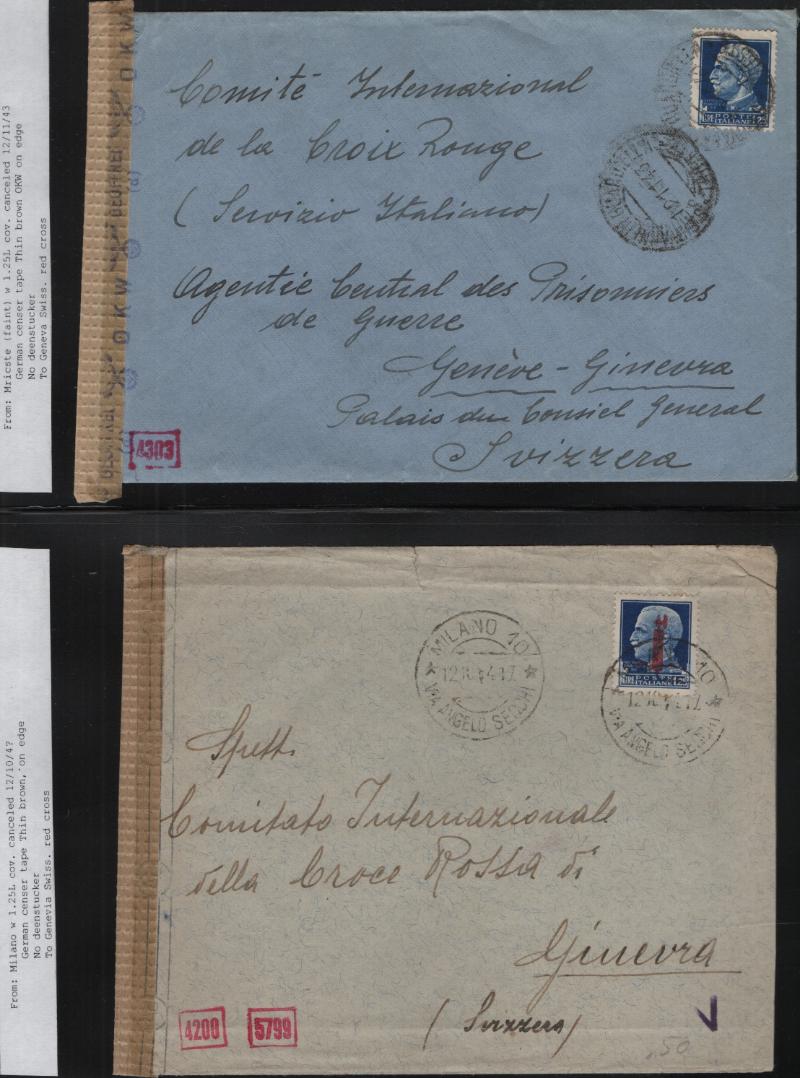 From: Mricste (faint) w 1.25L cov. canceled 12/11/43
German censer tape Thin brown OKW on edge
No deenstucker
To Geneva Swiss. red cross
OKW
GEÖFFNET
OKW
POSTE
ITALIANE
LIRE
Comité Internazional
de la Croix Rouge
(Servizio Italiano)
Agentie Central des Prisonniers
de Guerre
Genève - Ginevra
Palais du Consiel General
Svizzera
4303
From: Milano w 1.25L cov. canceled 12/10/4?
German censer tape Thin brown, on edge
No deenstucker
To Genevia Swiss. red cross
MILANO 10
VIA ANGELO SECCHI
POSTE
ITALIANE
LIRE
10
VIA ANGELO SECCHI
Spett.
Comitato Internazionale
della Croce Rossa di
Ginevra
(Svizzera)
4200
5799
.50